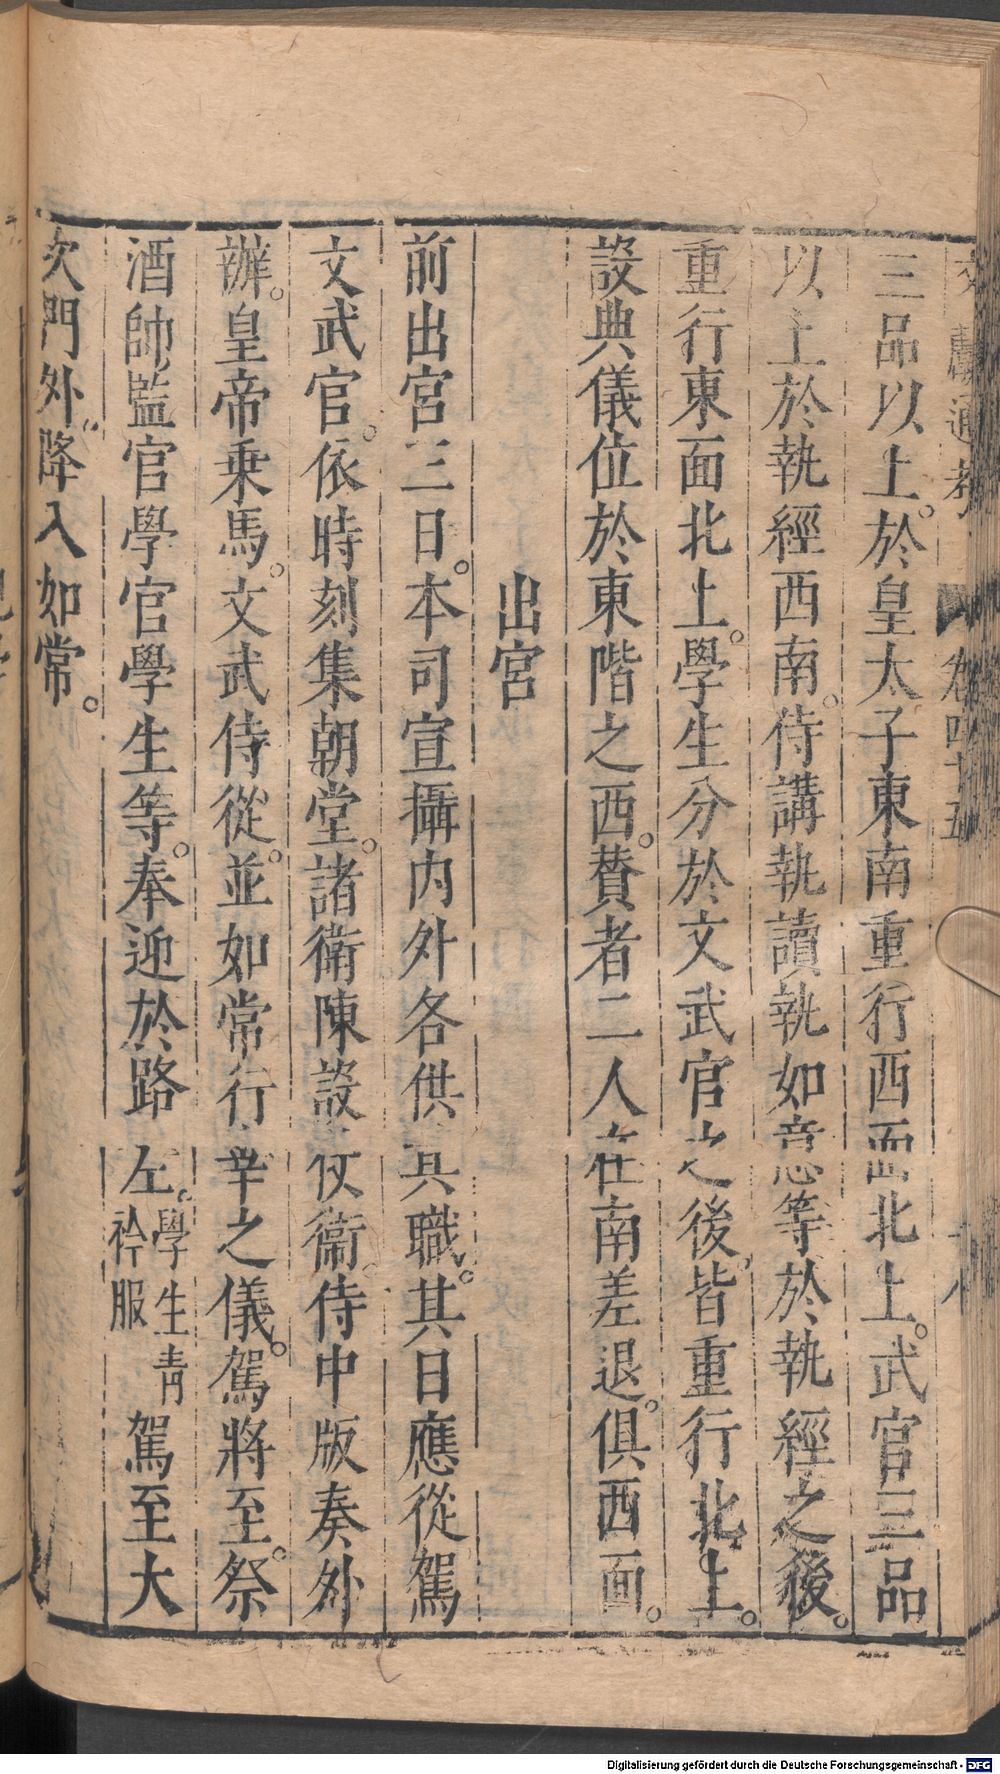 文獻通考 卷四十五 十八
三品以上。於皇太子東南重行西面北上。武官三品
以上於執經西南。侍講執讀執如意等於執經之後。
重行東面北上。學生分於文武官之後。皆重行北上。
設典儀位於東階之西。賛者二人在南差退。俱西面。
出宮
前出宮三日。本司宣攝内外各供其職。其日應從駕
文武官。依時刻集朝堂。諸衛陳設仗衞。侍中版奏外
辦。皇帝乗馬。文武侍從。並如常行幸之儀。駕將至。祭
酒帥監官學官學生等。奉迎於路左。學生青衿服駕至大
次門外降入如常。
Digitalisierung gefördert durch die Deutsche Forschungsgemeinschaft - DFG